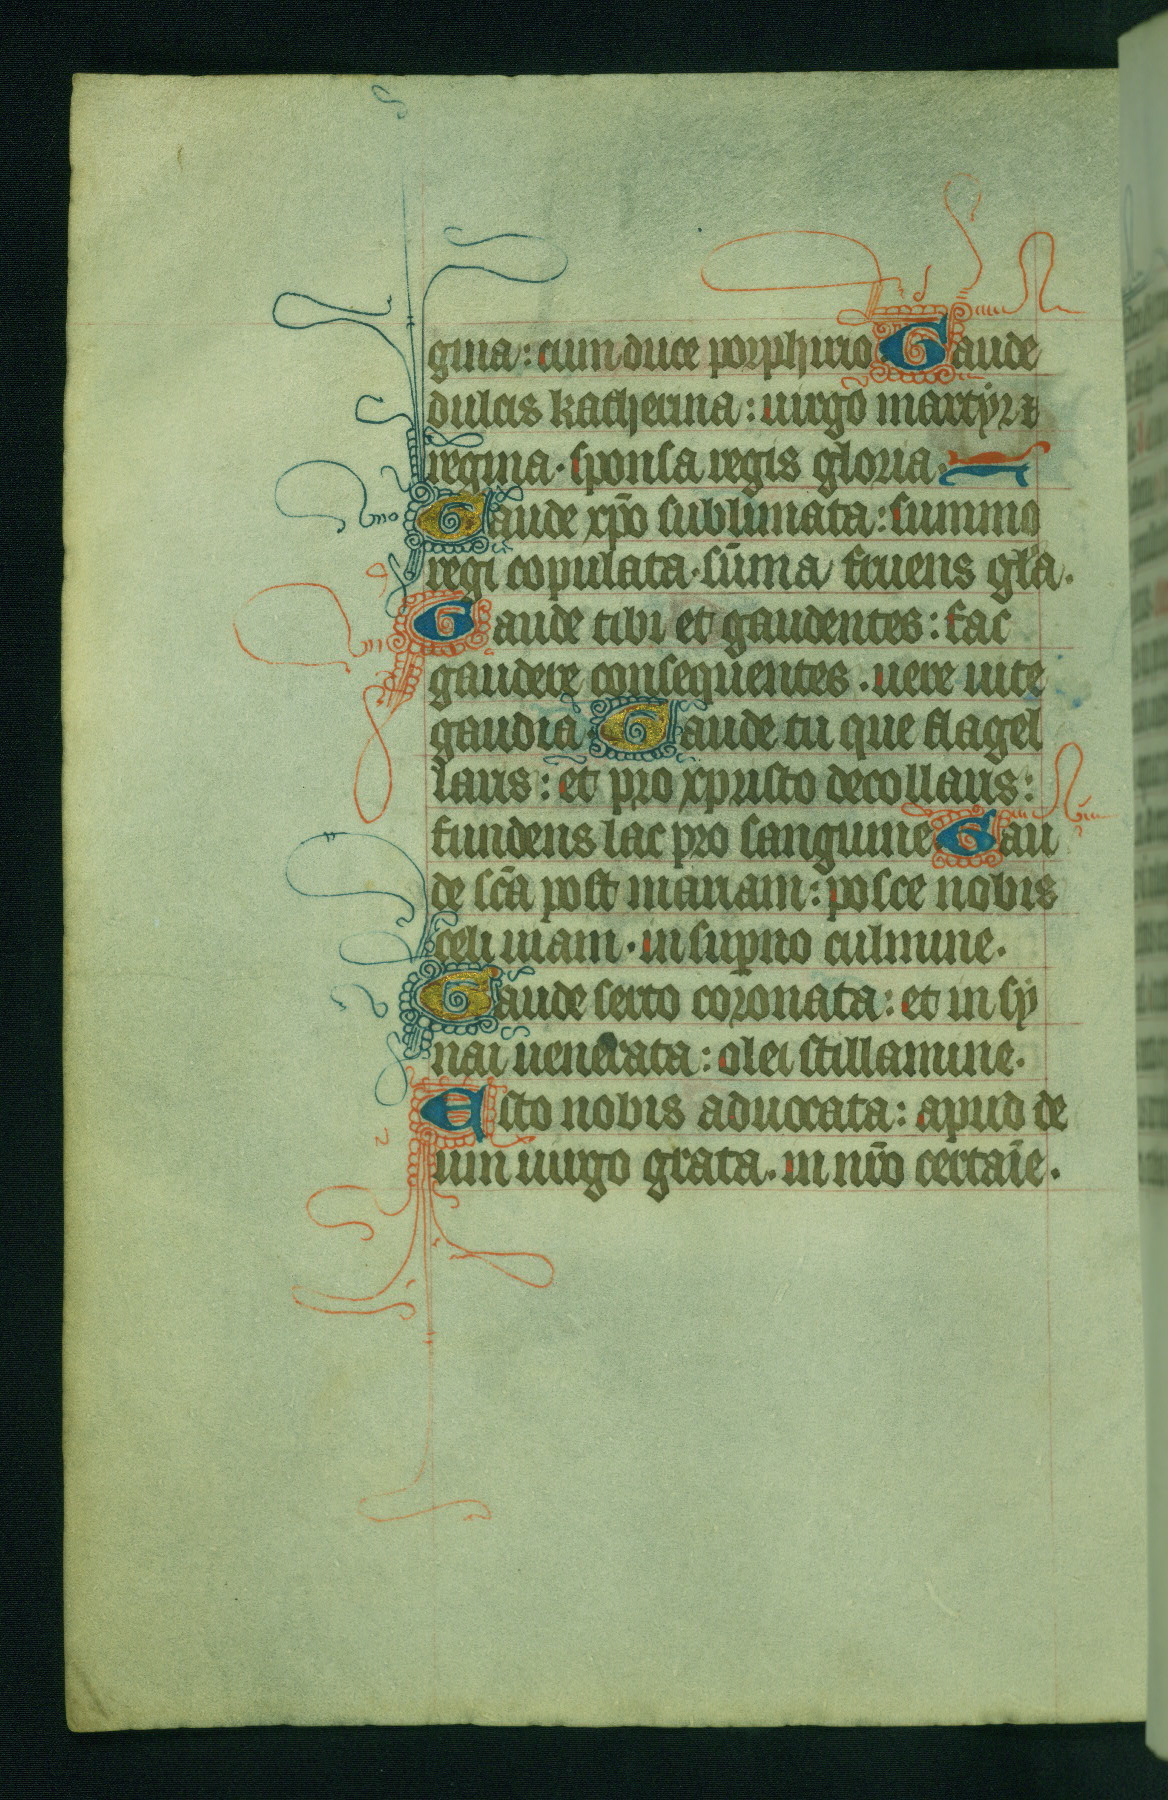 gina: cum duce porphirio Gaude
dulcis katherina: uirgo martyr et
regina. sponsa regis gloria.
Gaude xp̄o sublimata: summo
regi copulata. sūma fruens gl̄a.
Gaude tibi et gaudentes: fac
gaudere consequentes. uere uite
gaudia. Gaude tu que flagel
laris: et pro xpristo decollaris:
fundens lac pro sanguine Gau
de sc̄a post mariam: posce nobis
celi uiam. in sup̱no culmine.
Gaude serto coronata: et in sy
nai uenerata: olei stillamine.
Esto nobis aduocata: apud de
um uirgo grata. in nr̄o certaīe.